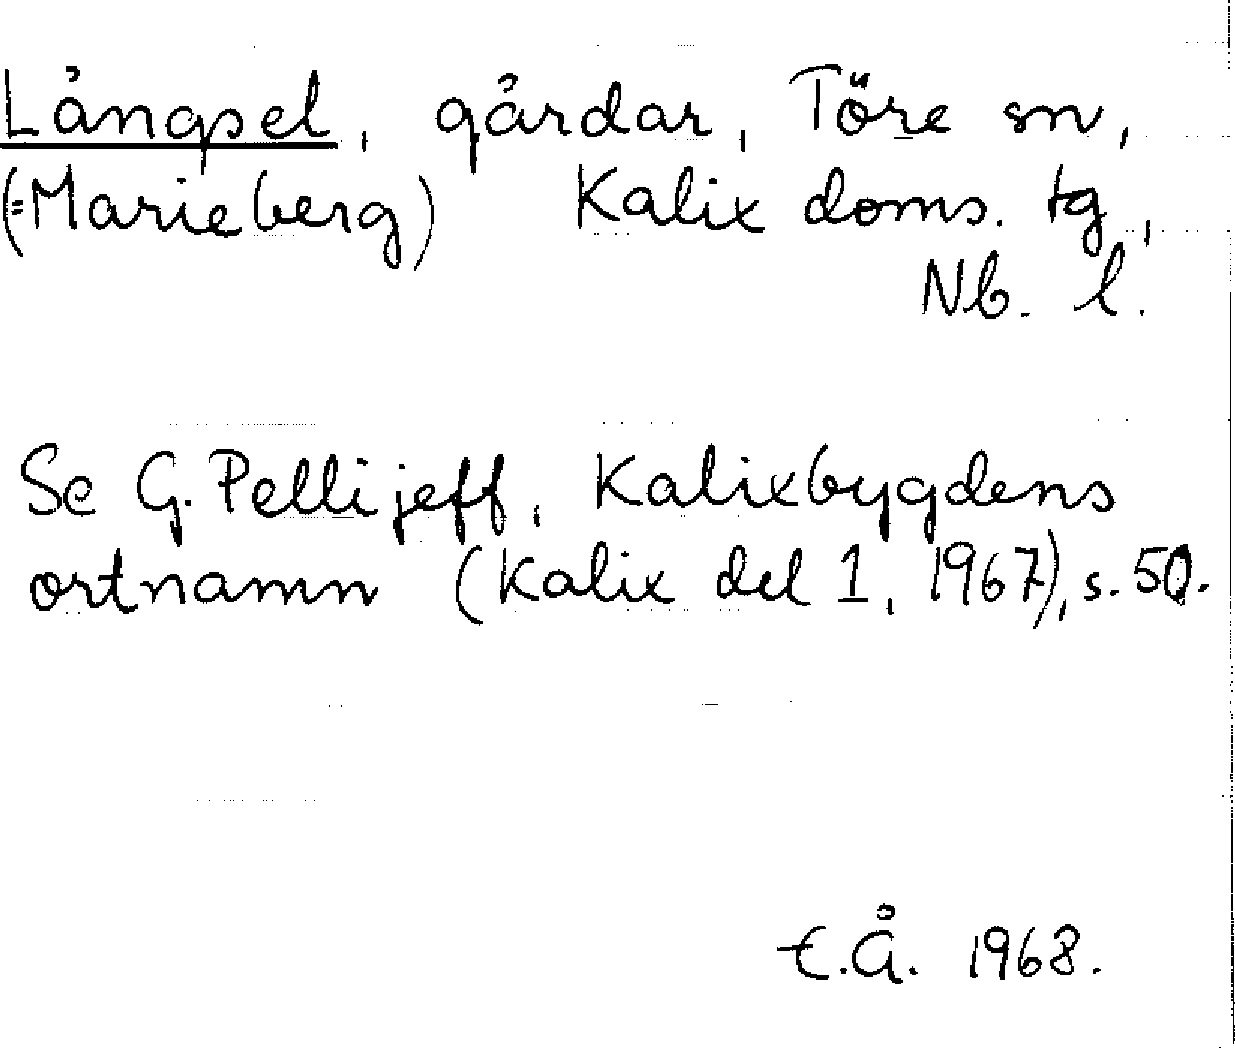 Långsel, gårdar, Töre sn,
(=Marieberg) Kalix doms. tg,
Nb. l.
Se G. Pellijeff, Kalixbygdens
ortnamn (Kalix del 1, 1967), s. 50.
E.Å. 1968.